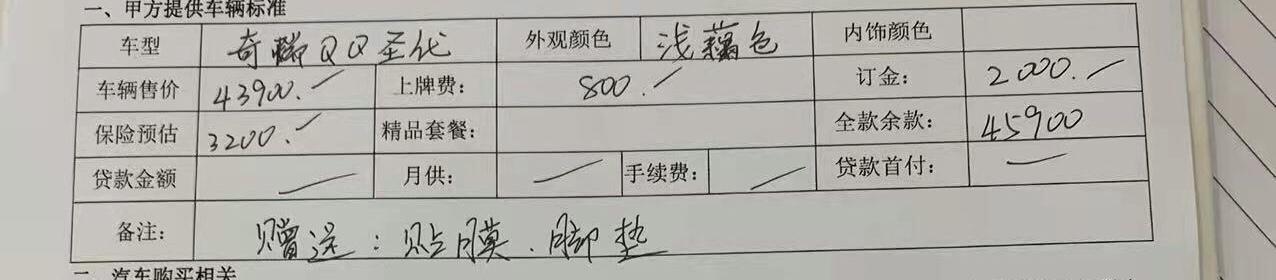 一、甲方提供车辆标准
车型 奇瑞QQ圣代 外观颜色 浅藕色 内饰颜色
车辆售价 43900. 上牌费： 800. 订金： 2000.
保险预估 3200. 精品套餐： 全款余款： 45900
贷款金额 — 月供： — 手续费： — 贷款首付： —
备注： 赠送：贴膜、脚垫
二、汽车购买相关